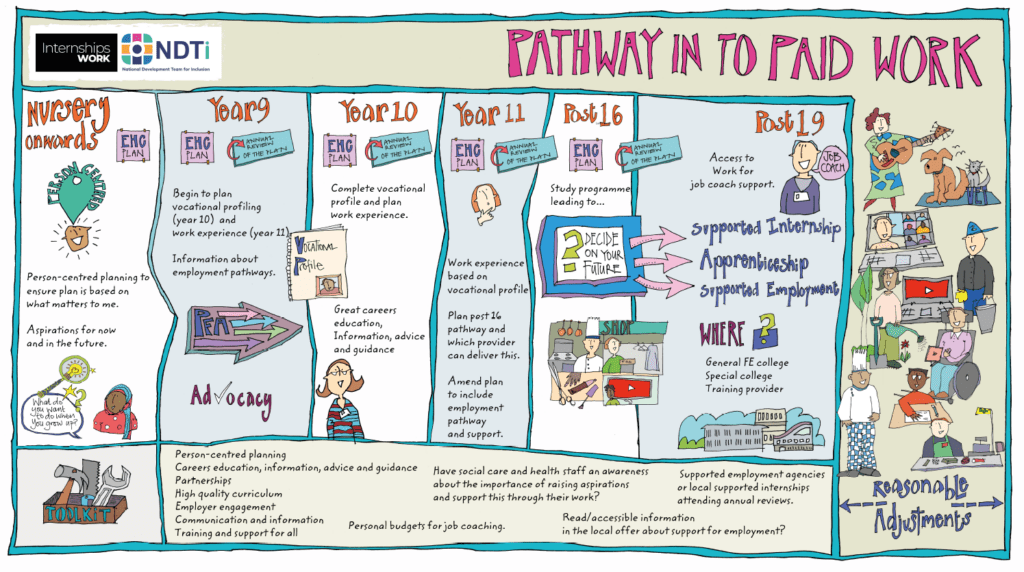 Internships
WORK
NDTi
National Development Team for Inclusion
PATHWAY IN TO PAID WORK
Nursery
onwards
EHC
PLAN
PERSON CENTRED
Person-centred planning to
ensure plan is based on
what matters to me.
Aspirations for now
and in the future.
What do
you want
to do when
you grow up?
Year 9
EHC
PLAN
ANNUAL
REVIEW
OF THE PLAN
Begin to plan
vocational profiling
(year 10) and
work experience (year 11)
Information about
employment pathways.
PFA
Advocacy
Year 10
EHC
PLAN
ANNUAL
REVIEW
OF THE PLAN
Complete vocational
profile and plan
work experience.
Vocational
Profile
Great careers
education,
Information, advice
and guidance
Year 11
EHC
PLAN
ANNUAL
REVIEW
OF THE PLAN
Work experience
based on
vocational profile
Plan post 16
pathway and
which provider
can deliver this.
Amend plan
to include
employment
pathway
and support.
Post 16
EHC
PLAN
ANNUAL
REVIEW
OF THE PLAN
Study programme
leading to...
? DECIDE
ON YOUR
FUTURE
SHOP
Post 19
Access to
Work for
job coach support.
JOB
COACH
Supported Internship
Apprenticeship
Supported Employment
WHERE ?
General FE college
Special college
Training provider
TOOLKIT
Person-centred planning
Careers education, information, advice and guidance
Partnerships
High quality curriculum
Employer engagement
Communication and information
Training and support for all
Have social care and health staff an awareness
about the importance of raising aspirations
and support this through their work?
Personal budgets for job coaching.
Read/accessible information
in the local offer about support for employment?
Supported employment agencies
or local supported internships
attending annual reviews.
Reasonable
Adjustments